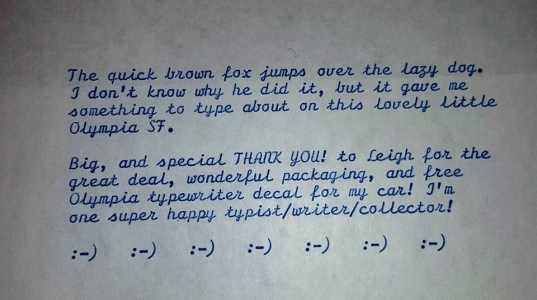 The quick brown fox jumps over the lazy dog.
I don't know why he did it, but it gave me
something to type about on this lovely little
Olympia SF.
Big, and special THANK YOU! to Leigh for the
great deal, wonderful packaging, and free
Olympia typewriter decal for my car! I'm
one super happy typist/writer/collector!
:-) :-) :-) :-) :-) :-) :-)